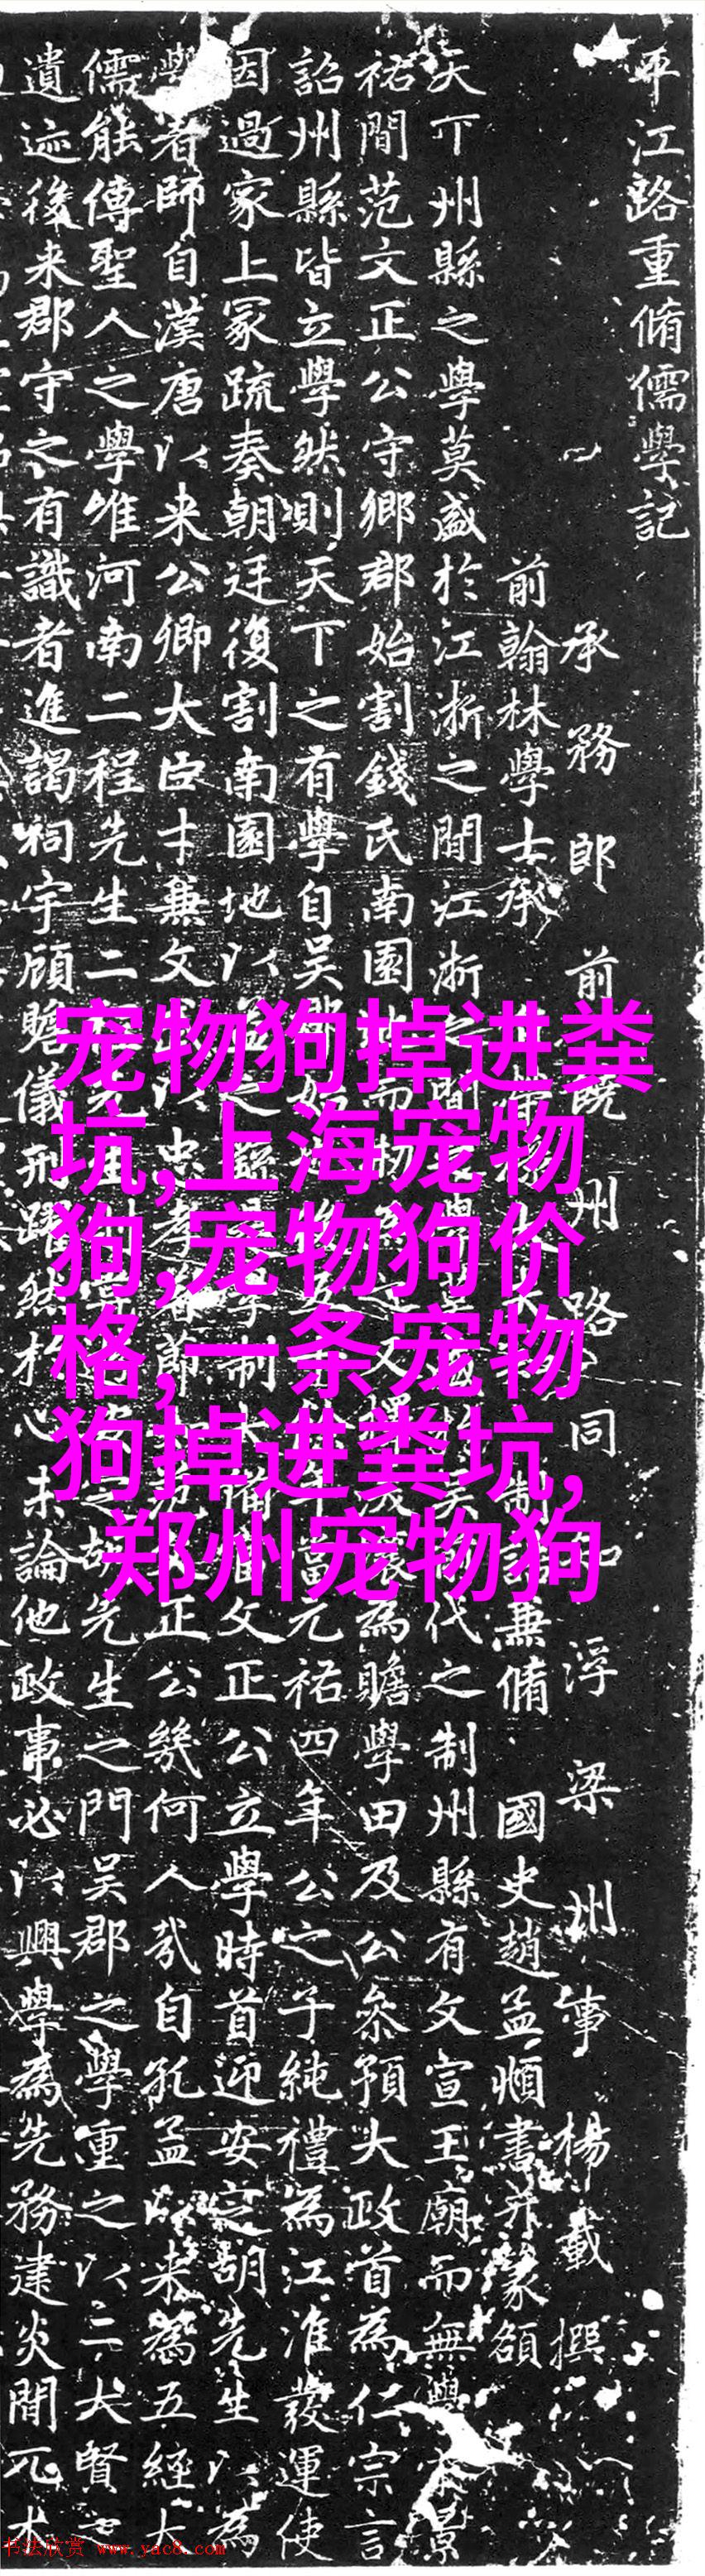 平江路重脩儒學記
承務郎前饒州路同知浮梁州事楊載撰
前翰林學士承
制誥兼脩國史趙孟頫書并篆額
大下州縣之學莫盛於江浙之間江浙之間
代之制州縣有文宣王廟而無學
祐間范文正公守鄉郡始割錢氏南園
為贍學田及公參預大政首為仁宗言
詔州縣皆立學然則天下之有學自吳郡始
元祐四年公之子純禮為江淮發運使
因過家上冢疏奏朝廷復割南園地以益之
文正公立學時首迎安定胡先生以為
學者師自漢唐以來公卿大臣才兼文武以忠孝
正公幾何人哉自孔孟以來為五經大
儒能傳聖人之學惟河南二程先生二程先生
胡先生之門吳郡之學重之以二大賢之
遺迹後来郡守之有識者進謁祠宇顧瞻儀刑踴然於心未論他政事必以興學為先務建炎間兀术
宠物狗掉进粪
坑,上海宠物
狗,宠物狗价
格,一条宠物
狗掉进粪坑,
郑州宠物狗
书法欣赏 www.yac8.com